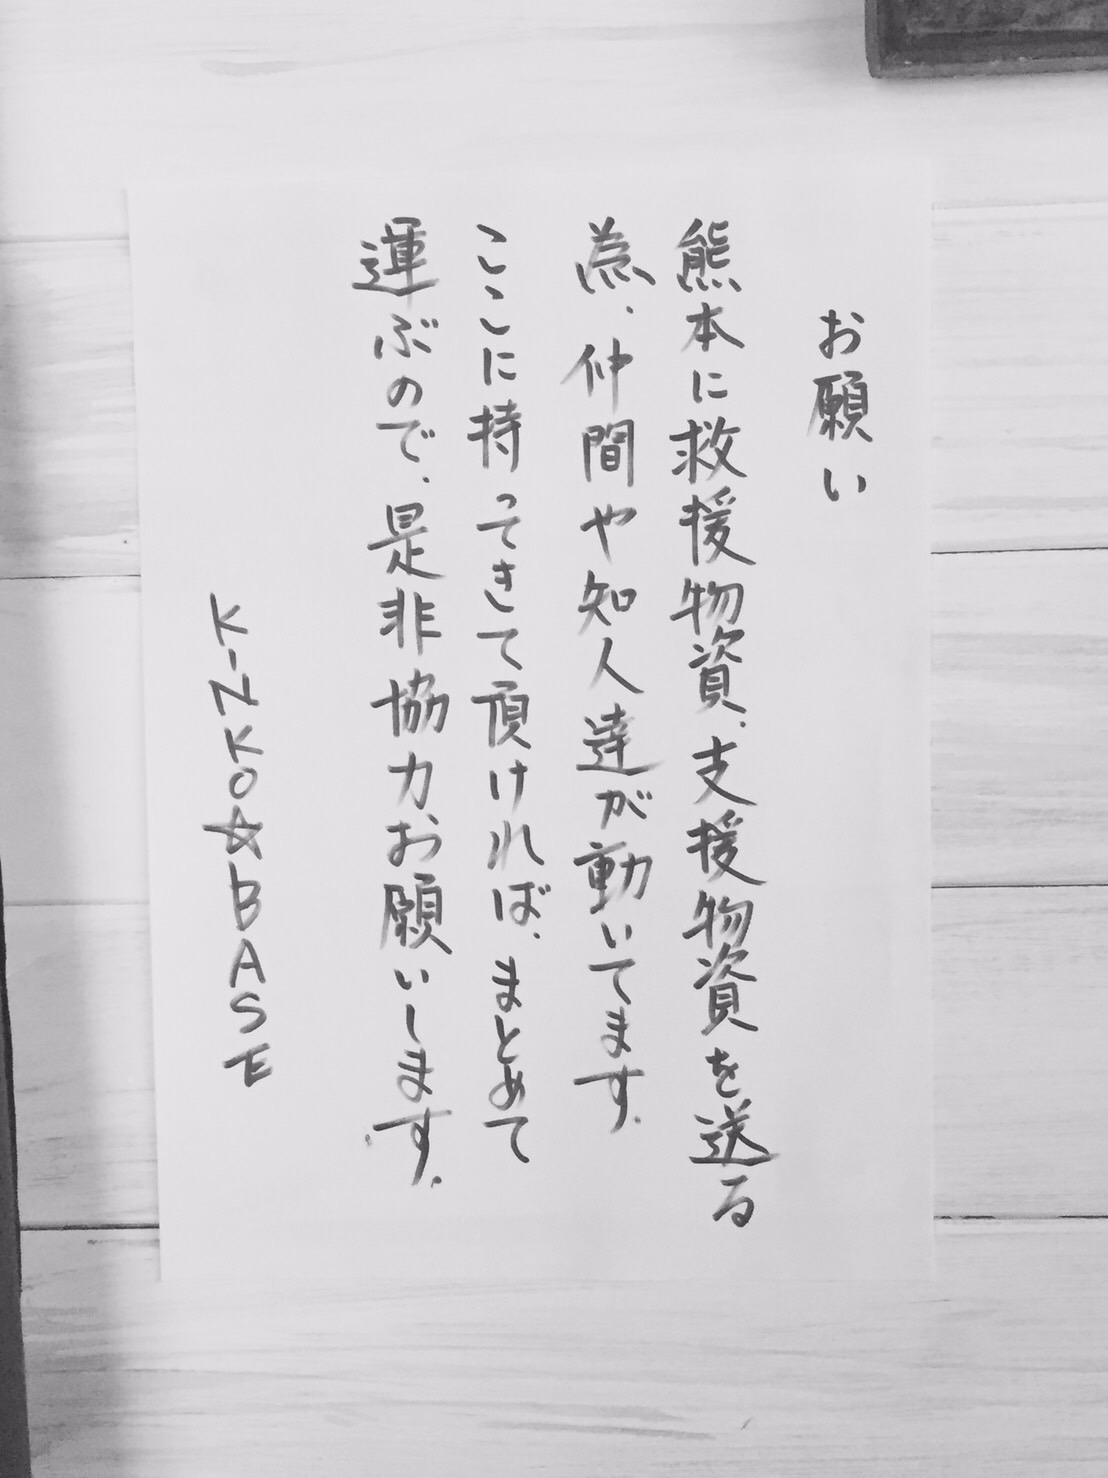 お願い
熊本に救援物資、支援物資を送る
為、仲間や知人達が動いてます。
ここに持ってきて頂ければ、まとめて
運ぶので、是非協力お願いします。
KINKO☆BASE